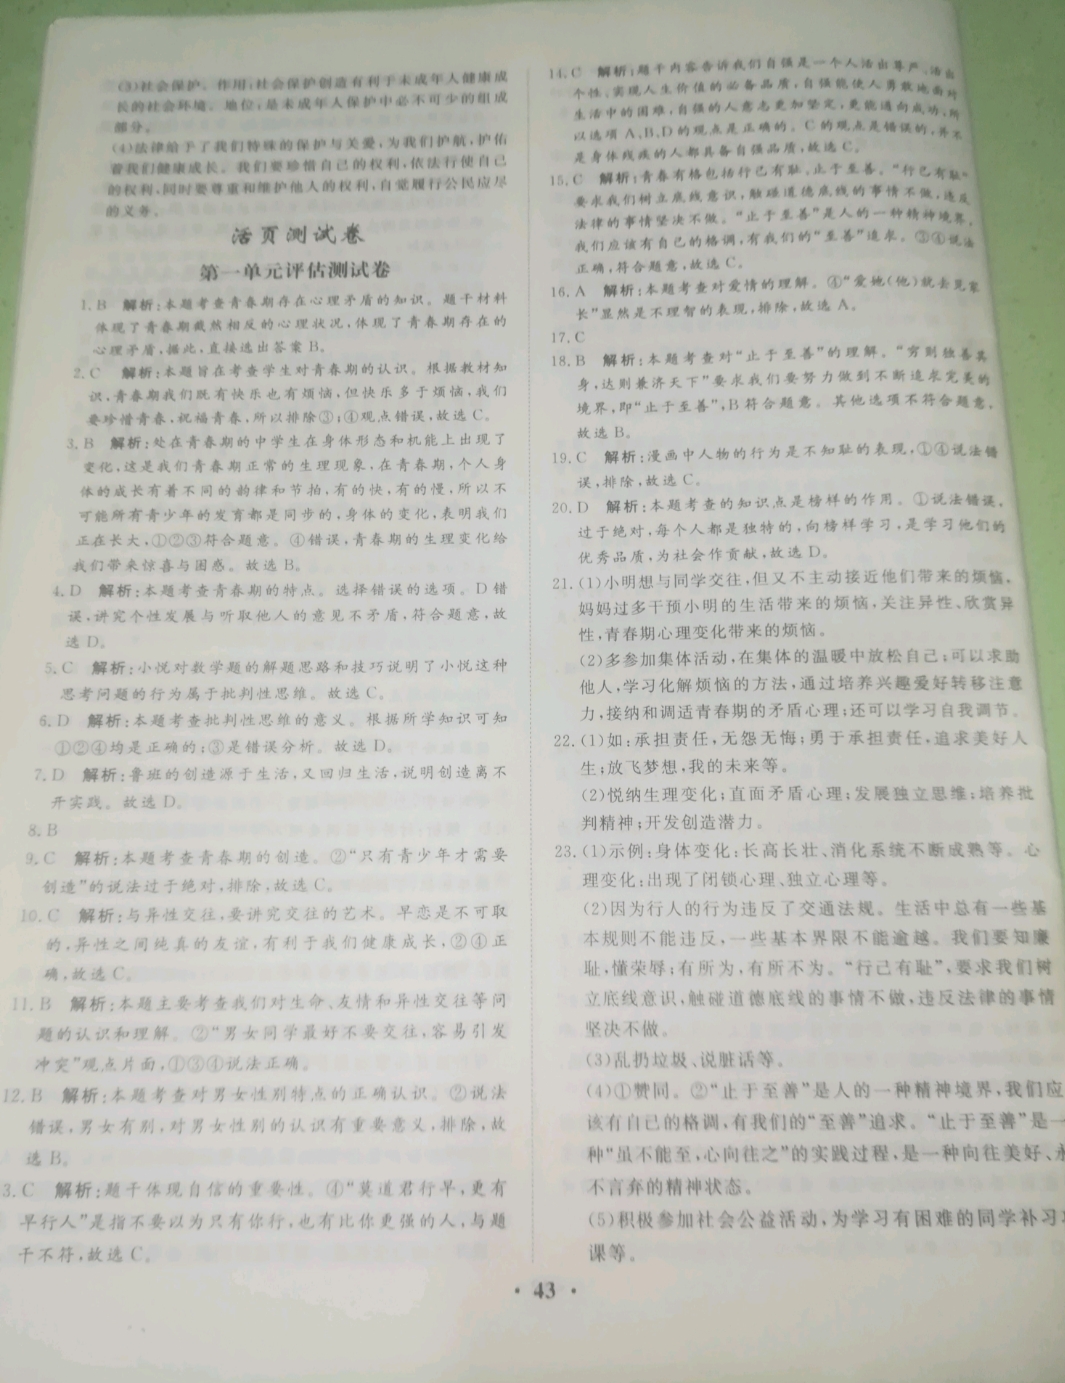 (3)社会保护。作用:社会保护创造有利于未成年人健康成
长的社会环境。地位:是未成年人保护中必不可少的组成
部分。
(4)法律给予了我们特殊的保护与关爱,为我们护航,护佑
着我们健康成长。我们要珍惜自己的权利,依法行使自己
的权利,同时要尊重和维护他人的权利,自觉履行公民应尽
的义务。
活页测试卷
第一单元评估测试卷
1. B 解析:本题考查青春期存在心理矛盾的知识。题干材料
体现了青春期截然相反的心理状况,体现了青春期存在的
心理矛盾,据此,直接选出答案 B。
2. C 解析:本题旨在考查学生对青春期的认识。根据教材知
识,青春期我们既有快乐也有烦恼,但快乐多于烦恼,我们
要珍惜青春,祝福青春,所以排除③;④观点错误,故选 C。
3. B 解析:处在青春期的中学生在身体形态和机能上出现了
变化,这是我们青春期正常的生理现象,在青春期,个人身
体的成长有着不同的韵律和节拍,有的快,有的慢,所以不
可能所有青少年的发育都是同步的,身体的变化,表明我们
正在长大,①②③符合题意。④错误,青春期的生理变化给
我们带来惊喜与困惑。故选 B。
4. D 解析:本题考查青春期的特点。选择错误的选项。D 错
误,讲究个性发展与听取他人的意见不矛盾,符合题意,故
选 D。
5. C 解析:小悦对数学题的解题思路和技巧说明了小悦这种
思考问题的行为属于批判性思维。故选 C。
6. D 解析:本题考查批判性思维的意义。根据所学知识可知
①②④均是正确的;③是错误分析。故选 D。
7. D 解析:鲁班的创造源于生活,又回归生活,说明创造离不
开实践。故选 D。
8. B
9. C 解析:本题考查青春期的创造。②“只有青少年才需要
创造”的说法过于绝对,排除,故选 C。
10. C 解析:与异性交往,要讲究交往的艺术。早恋是不可取
的,异性之间纯真的友谊,有利于我们健康成长,②④正
确,故选 C。
11. B 解析:本题主要考查我们对生命、友情和异性交往等问
题的认识和理解。②“男女同学最好不要交往,容易引发
冲突”观点片面,①③④说法正确。
12. B 解析:本题考查对男女性别特点的正确认识。②说法
错误,男女有别,对男女性别的认识有重要意义,排除,故
选 B。
3. C 解析:题干体现自信的重要性。④“莫道君行早,更有
早行人”是指不要以为只有你行,也有比你更强的人,与题
干不符,故选 C。
14. C 解析:题干内容告诉我们自强是一个人活出尊严、活出
个性、实现人生价值的必备品质,自强能使人勇敢地面对
生活中的困难,自强的人意志更加坚定,更能通向成功,所
以选项 A、B、D 的观点是正确的。C 的观点是错误的,并不
是身体残疾的人都具备自强品质,故选 C。
15. C 解析:青春有格包括行己有耻,止于至善。“行己有耻”
要求我们树立底线意识,触碰道德底线的事情不做,违反
法律的事情坚决不做。“止于至善”是人的一种精神境界,
我们应该有自己的格调,有我们的“至善”追求。③④说法
正确,符合题意,故选 C。
16. A 解析:本题考查对爱情的理解。④“爱她(他)就去见家
长”显然是不理智的表现,排除,故选 A。
17. C
18. B 解析:本题考查对“止于至善”的理解。“穷则独善其
身,达则兼济天下”要求我们要努力做到不断追求完美的
境界,即“止于至善”,B 符合题意。其他选项不符合题意,
故选 B。
19. C 解析:漫画中人物的行为是不知耻的表现,①④说法错
误,排除,故选 C。
20. D 解析:本题考查的知识点是榜样的作用。①说法错误,
过于绝对,每个人都是独特的,向榜样学习,是学习他们的
优秀品质,为社会作贡献,故选 D。
21. (1)小明想与同学交往,但又不主动接近他们带来的烦恼,
妈妈过多干预小明的生活带来的烦恼,关注异性、欣赏异
性,青春期心理变化带来的烦恼。
(2)多参加集体活动,在集体的温暖中放松自己;可以求助
他人,学习化解烦恼的方法,通过培养兴趣爱好转移注意
力,接纳和调适青春期的矛盾心理;还可以学习自我调节。
22. (1)如:承担责任,无怨无悔;勇于承担责任,追求美好人
生;放飞梦想,我的未来等。
(2)悦纳生理变化;直面矛盾心理;发展独立思维;培养批
判精神;开发创造潜力。
23. (1)示例:身体变化:长高长壮、消化系统不断成熟等。心
理变化:出现了闭锁心理、独立心理等。
(2)因为行人的行为违反了交通法规。生活中总有一些基
本规则不能违反,一些基本界限不能逾越。我们要知廉
耻,懂荣辱;有所为,有所不为。“行己有耻”,要求我们树
立底线意识,触碰道德底线的事情不做,违反法律的事情
坚决不做。
(3)乱扔垃圾、说脏话等。
(4)①赞同。②“止于至善”是人的一种精神境界,我们应
该有自己的格调,有我们的“至善”追求。“止于至善”是一
种“虽不能至,心向往之”的实践过程,是一种向往美好、永
不言弃的精神状态。
(5)积极参加社会公益活动,为学习有困难的同学补习
课等。
• 43 •